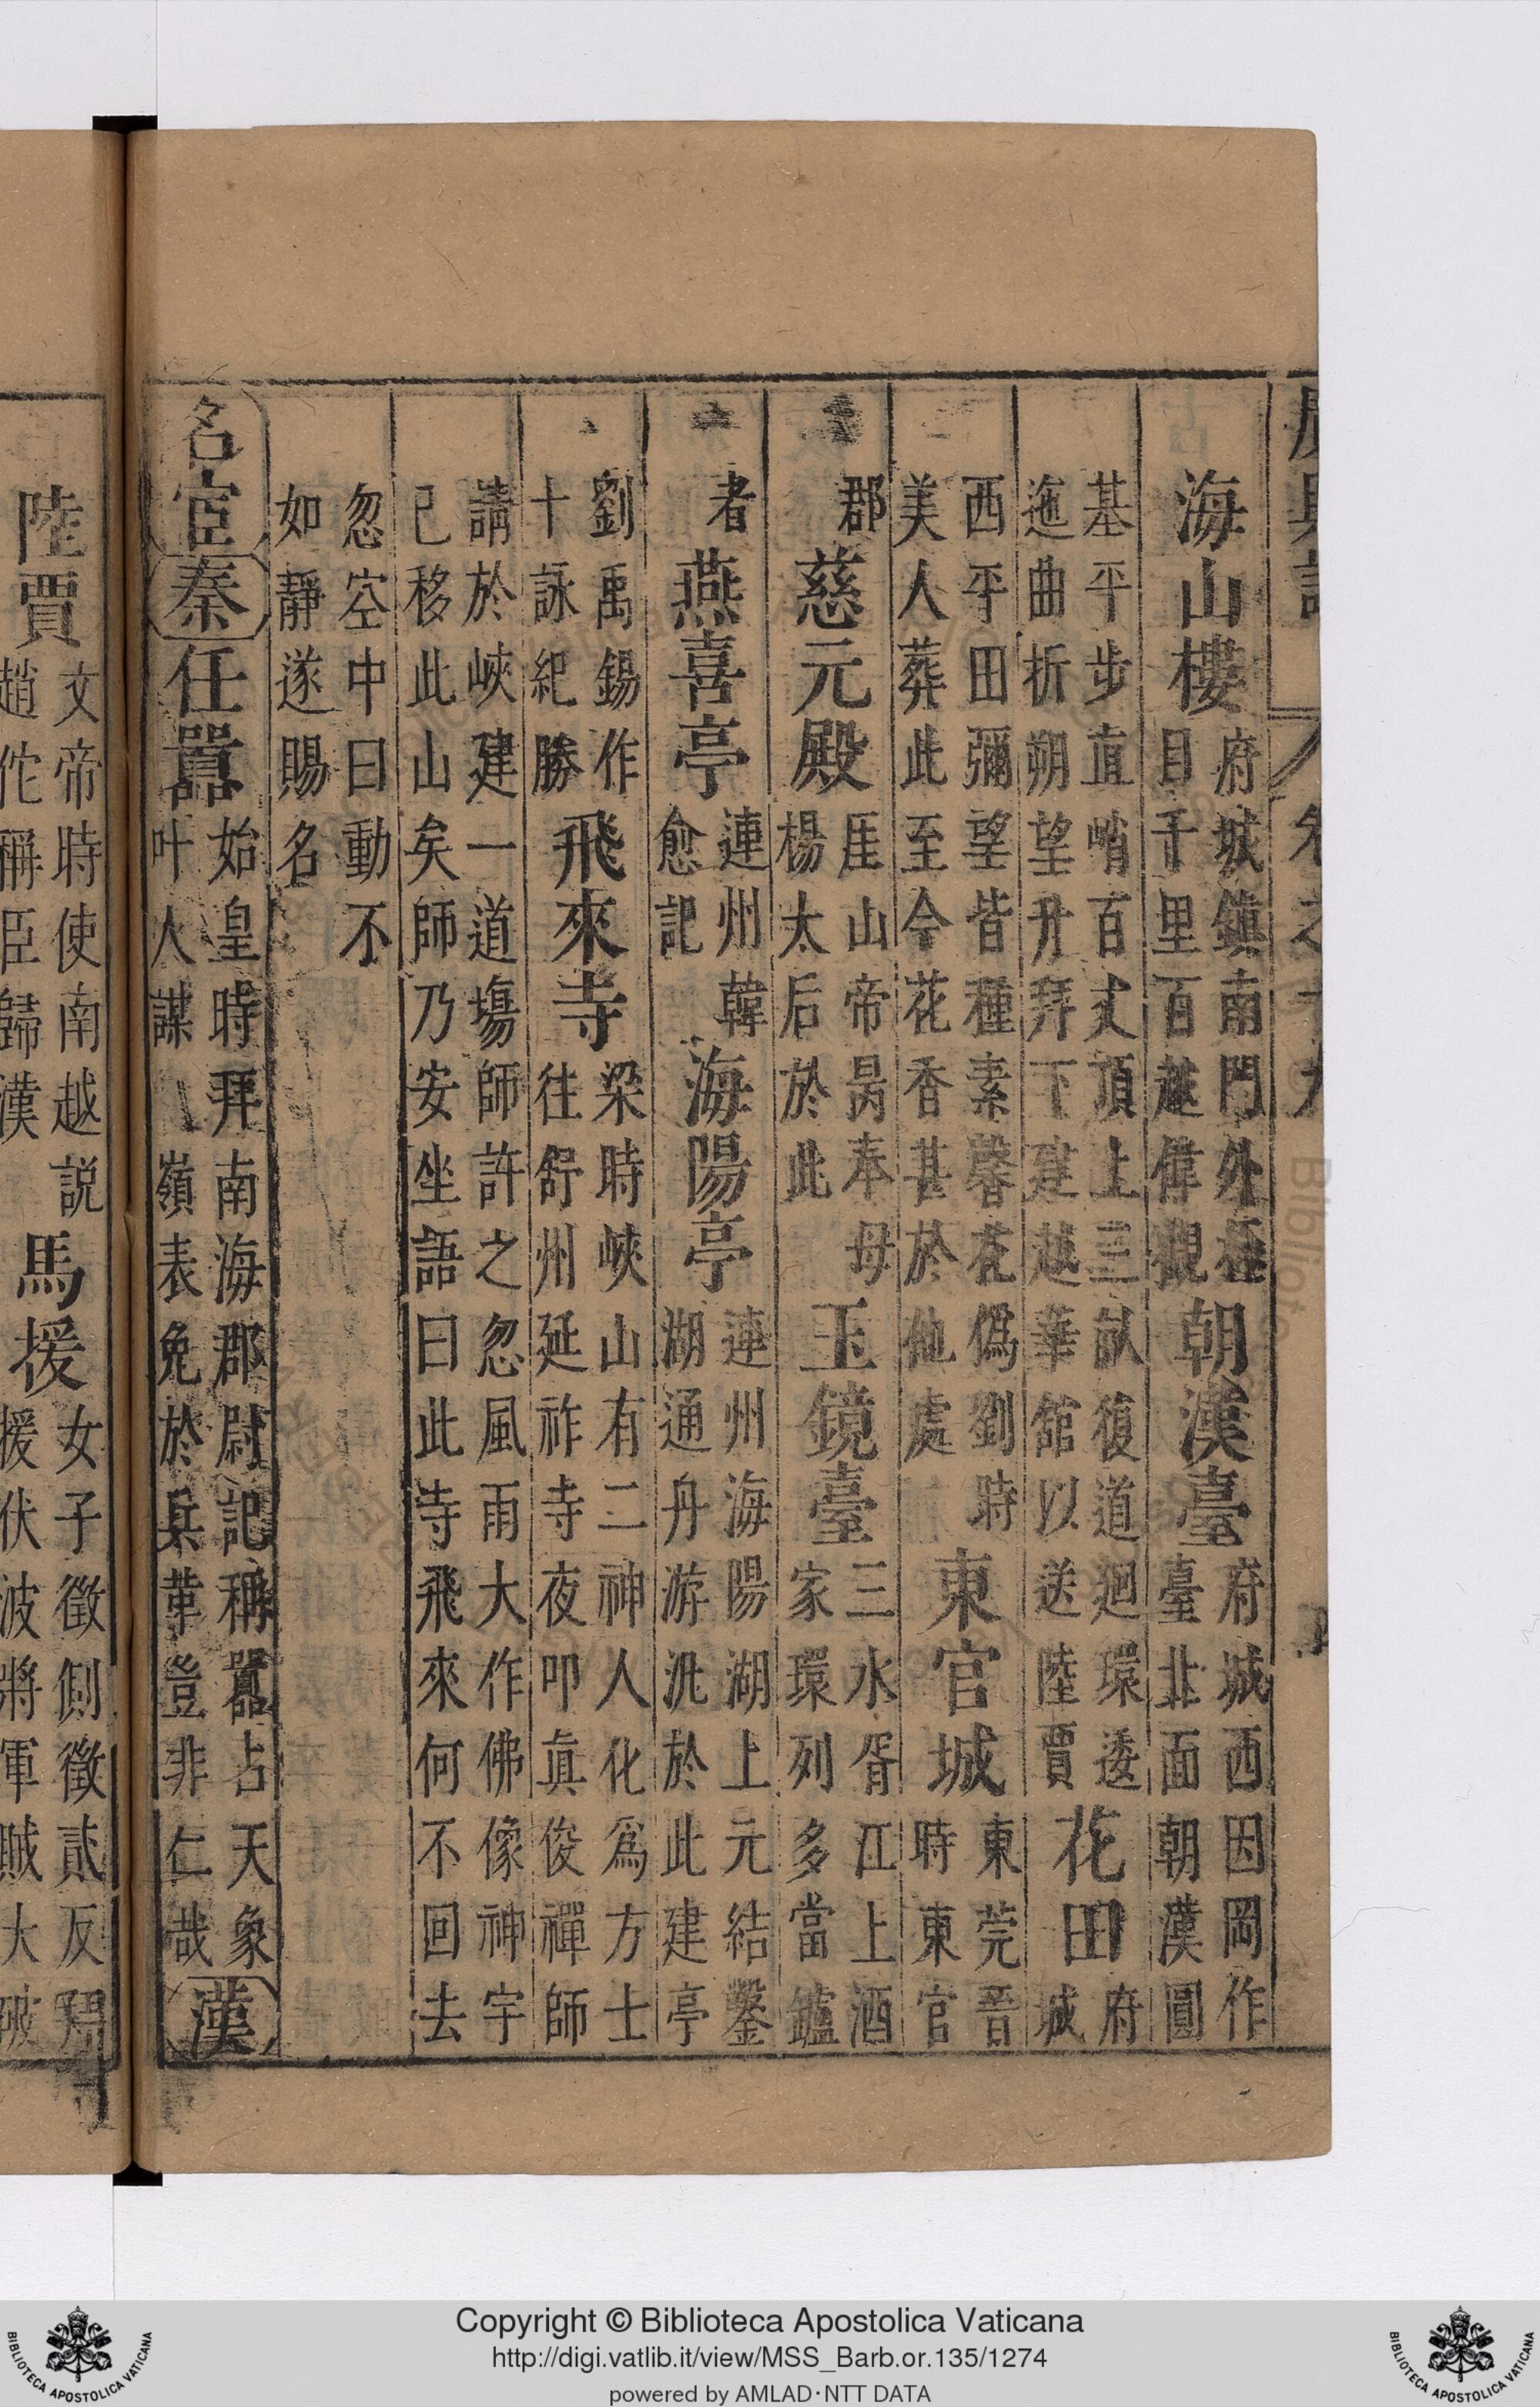 廣輿記 卷之十九
海山樓 府城鎮南門外極目千里百越偉觀 朝漢臺 府城西因岡作臺北面朝漢圓
基平步直峭百丈頂上三畝復道迴環逶迤曲折朔望升拜下建越華舘以送陸賈 花田 府城
西平田彌望皆種素馨花偽劉時美人葬此至今花香甚於他處 東官城 東莞晉時東官
郡 慈元殿 厓山帝昺奉母楊太后於此 玉鏡臺 三水胥江上酒家環列多當鑪
者 燕喜亭 連州韓愈記 海陽亭 連州海陽湖上元結鑿湖通丹游洮於此建亭
劉禹錫作十詠紀勝 飛來寺 梁時峽山有二神人化爲方士往舒州延祚寺夜叩眞俊禪師
請於峽建一道場師許之忽風雨大作佛像神宇已移此山矣師乃安坐語曰此寺飛來何不回去
忽空中曰動不如靜遂賜名
名宦 秦 任囂 始皇時拜南海郡尉記稱囂占天象叶人謀嶺表免於兵革豈非仁哉 漢
陸賈 文帝時使南越説趙佗稱臣歸漢 馬援 女子徵側徵貳反援伏波將軍賊大破
Copyright © Biblioteca Apostolica Vaticana
http://digi.vatlib.it/view/MSS_Barb.or.135/1274
powered by AMLAD·NTT DATA
BIBLIOTECA APOSTOLICA VATICANA
BIBLIOTECA APOSTOLICA VATICANA